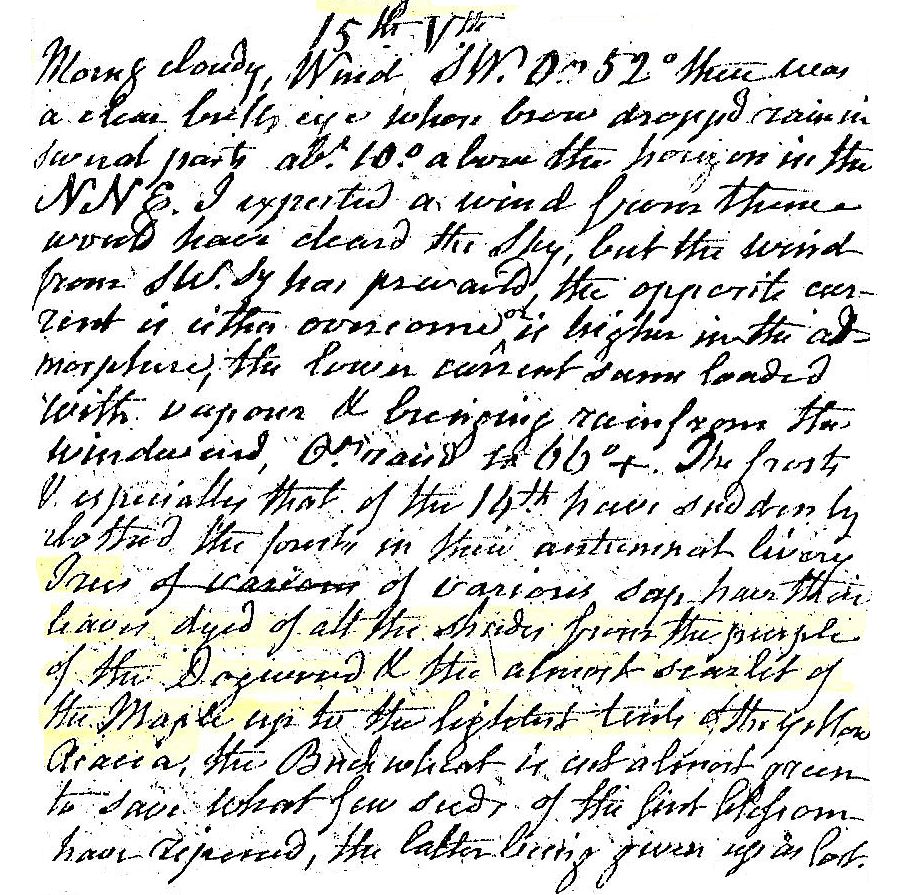 15th Vth
Morng cloudy, Wind SW. Or 52° there was
a clear bulls eye whose brow dropped rain in
several parts abt. 10° above the horizon in the
NNE. I expected a wind from thence
would have cleard the Sky, but the wind
from SW.Sy has prevaild, the opposite cur-
rent is either overcome or is higher in the at-
mosphere, the lower current same loaded
with vapour & bringing rain from the
windward, Or raisd to 66°+. The frosts
& especially that of the 14th have suddenly
clothed the forests in their autumnal livery
Trees of various of various sap have their
leaves dyed of all the shades from the purple
of the Dogwood & the almost scarlet of
the Maple up to the lightest tints of the yellow
Acacia, the Buckwheat is cut almost green
to save what few seeds of the first blossom
have ripened, the latter being given up as lost.